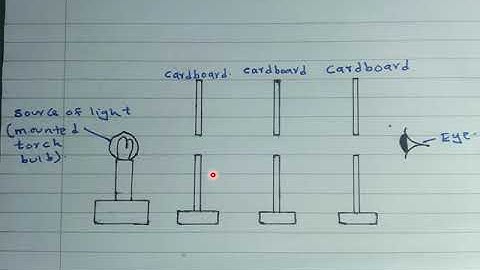 cardboard. cardboard cardboard
source of light
(mounted
torch
bulb)
Eye.